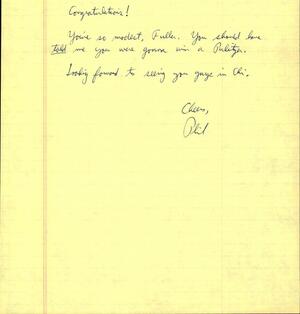 Congratulations!
You're so modest, Fuller. You should have
told me you were gonna win a Pulitzer.
Looking forward to seeing you guys in Chi.
Cheers,
Phil